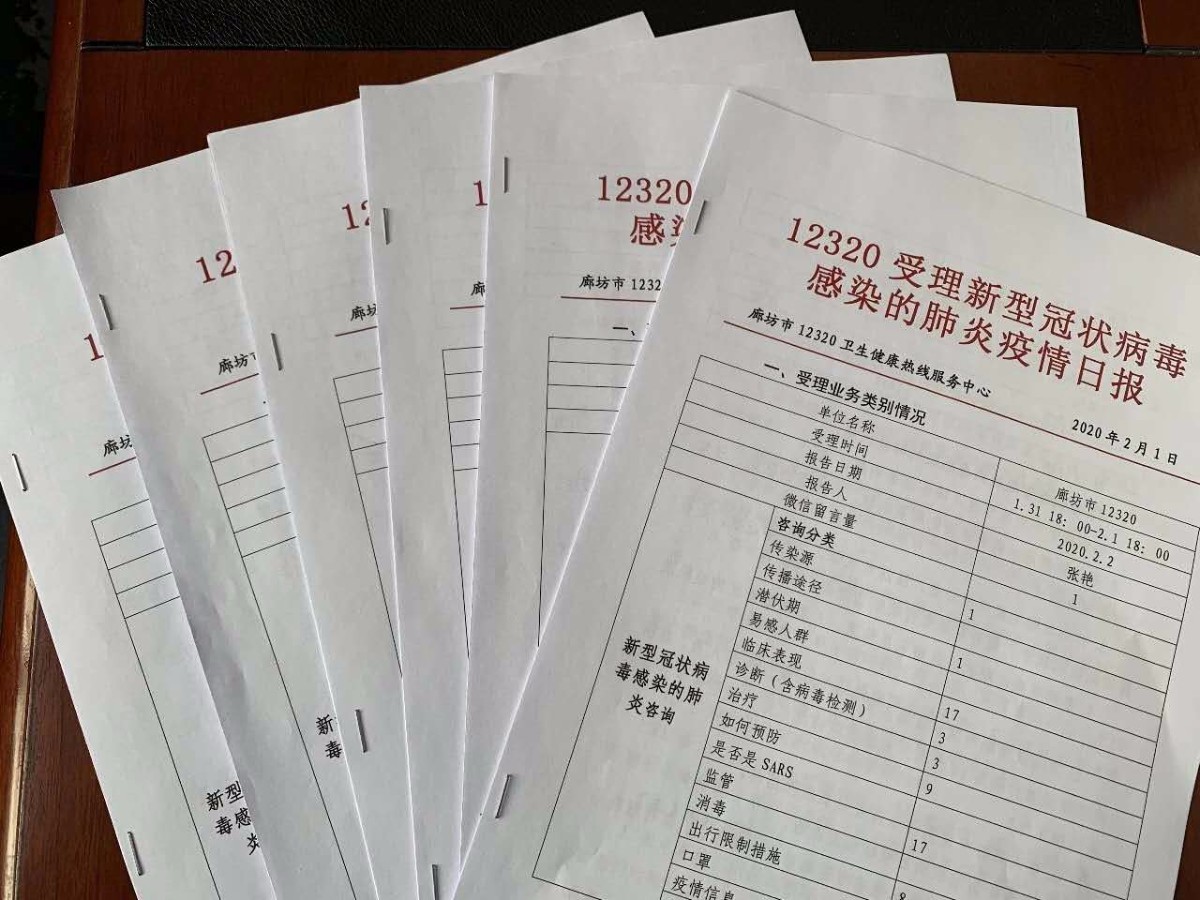 12320 受理新型冠状病毒
感染的肺炎疫情日报
廊坊市 12320 卫生健康热线服务中心
2020 年 2 月 1 日
一、受理业务类别情况
单位名称 廊坊市 12320
受理时间 1.31 18：00-2.1 18：00
报告日期 2020.2.2
报告人 张艳
微信留言量 1
新型冠状病
毒感染的肺
炎咨询
咨询分类
传染源 1
传播途径
潜伏期 1
易感人群
临床表现 17
诊断（含病毒检测） 3
治疗 3
如何预防 9
是否是 SARS
监管 17
消毒
出行限制措施 8
口罩
疫情信息
12320
感
廊坊市 1232
一、
1
廊
12
廊坊
新
毒
12
廊坊
新型
毒感
炎
1
廊坊